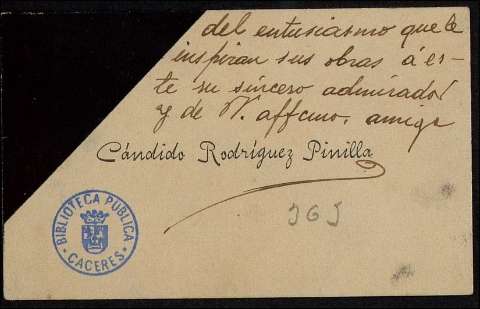 del entusiasmo que le
inspiran sus obras á es-
te su sincero admirador
y de V. affmo. amigo
Cándido Rodríguez Pinilla
365
BIBLIOTECA PUBLICA
CACERES